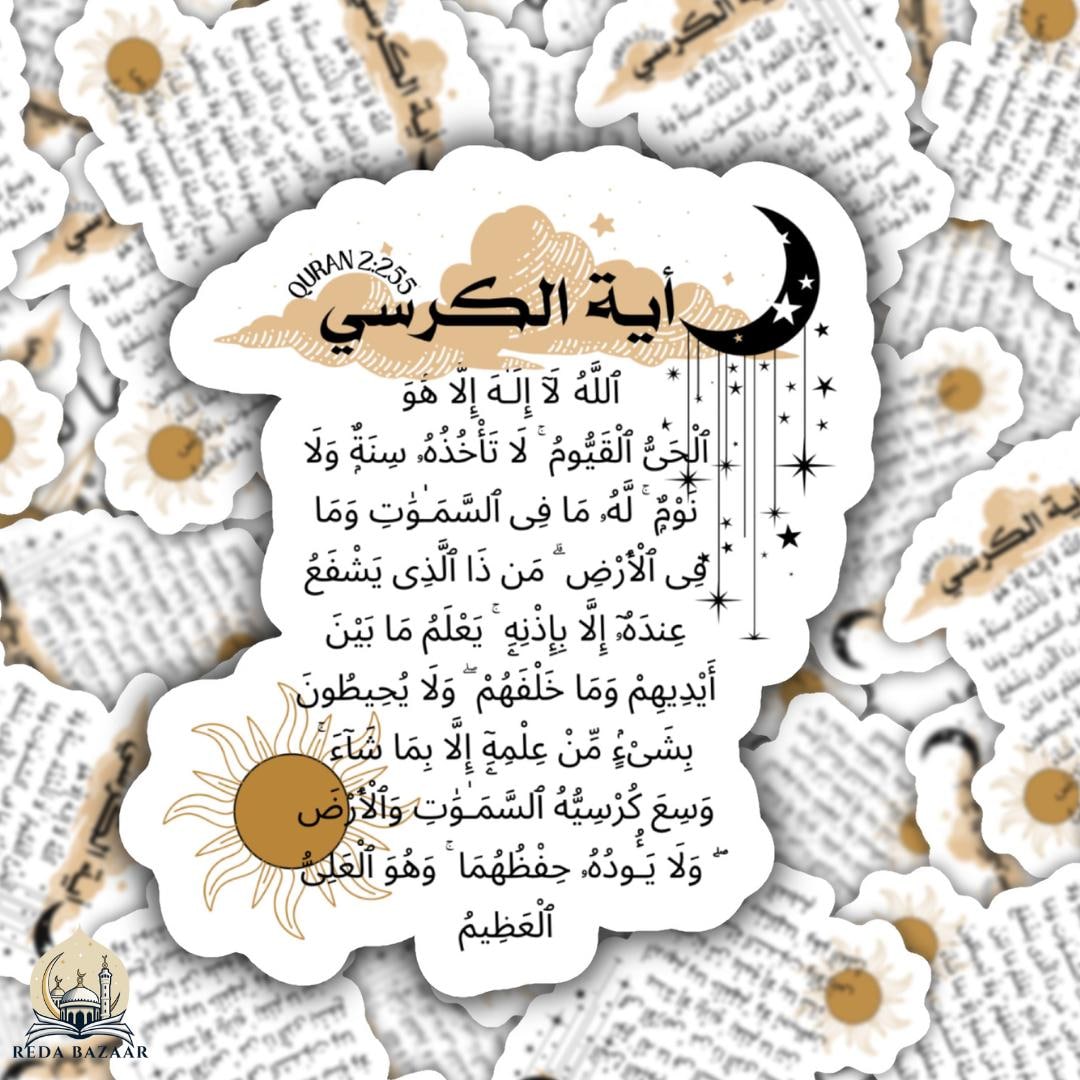 QURAN 2:255
أية الكرسي
ٱللَّهُ لَآ إِلَـٰهَ إِلَّا هُوَ
ٱلْحَىُّ ٱلْقَيُّومُ ۚ لَا تَأْخُذُهُۥ سِنَةٌۭ وَلَا
نَوْمٌۭ ۚ لَّهُۥ مَا فِى ٱلسَّمَـٰوَٰتِ وَمَا
فِى ٱلْأَرْضِ ۗ مَن ذَا ٱلَّذِى يَشْفَعُ
عِندَهُۥٓ إِلَّا بِإِذْنِهِۦ ۚ يَعْلَمُ مَا بَيْنَ
أَيْدِيهِمْ وَمَا خَلْفَهُمْ ۖ وَلَا يُحِيطُونَ
بِشَىْءٍۢ مِّنْ عِلْمِهِۦٓ إِلَّا بِمَا شَآءَ ۚ
وَسِعَ كُرْسِيُّهُ ٱلسَّمَـٰوَٰتِ وَٱلْأَرْضَ
ۖ وَلَا يَـُٔودُهُۥ حِفْظُهُمَا ۚ وَهُوَ ٱلْعَلِىُّ
ٱلْعَظِيمُ
REDA BAZAAR